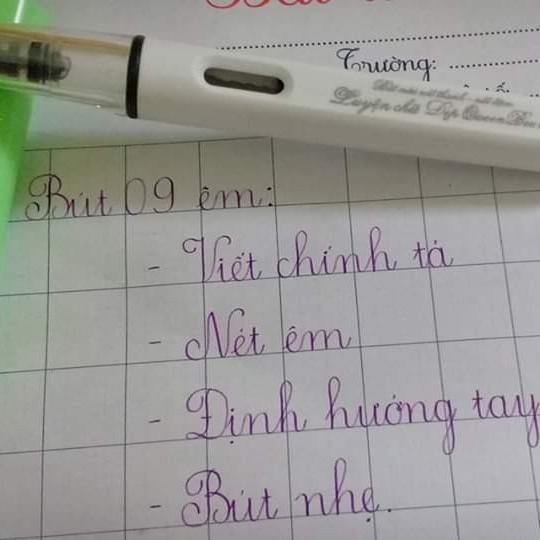 Trường:
Luyện chữ Đẹp
Bút 09 êm:
- Viết chính tả
- Nét êm
- Định hướng tay
- Bút nhẹ.